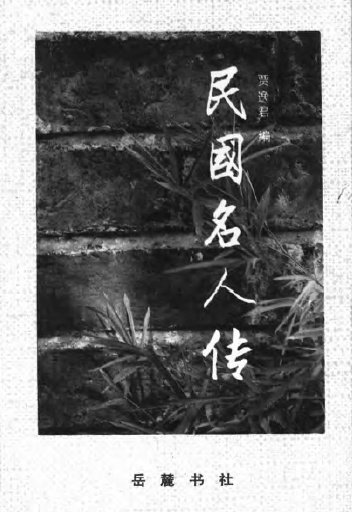 民國名人传
贾逸君 编
岳麓书社